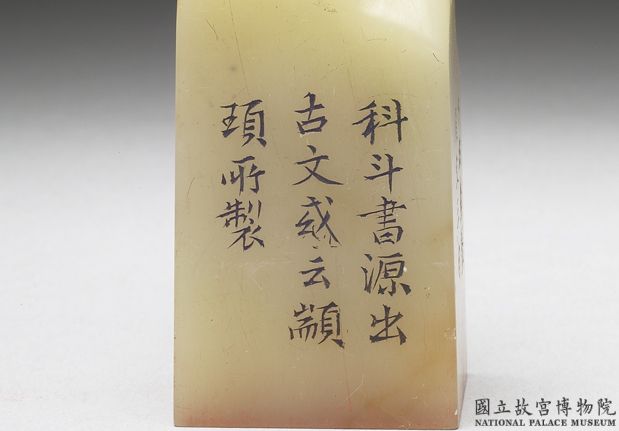 科斗書源出
古文或云顓
頊所製
國立故宮博物院
NATIONAL PALACE MUSEUM